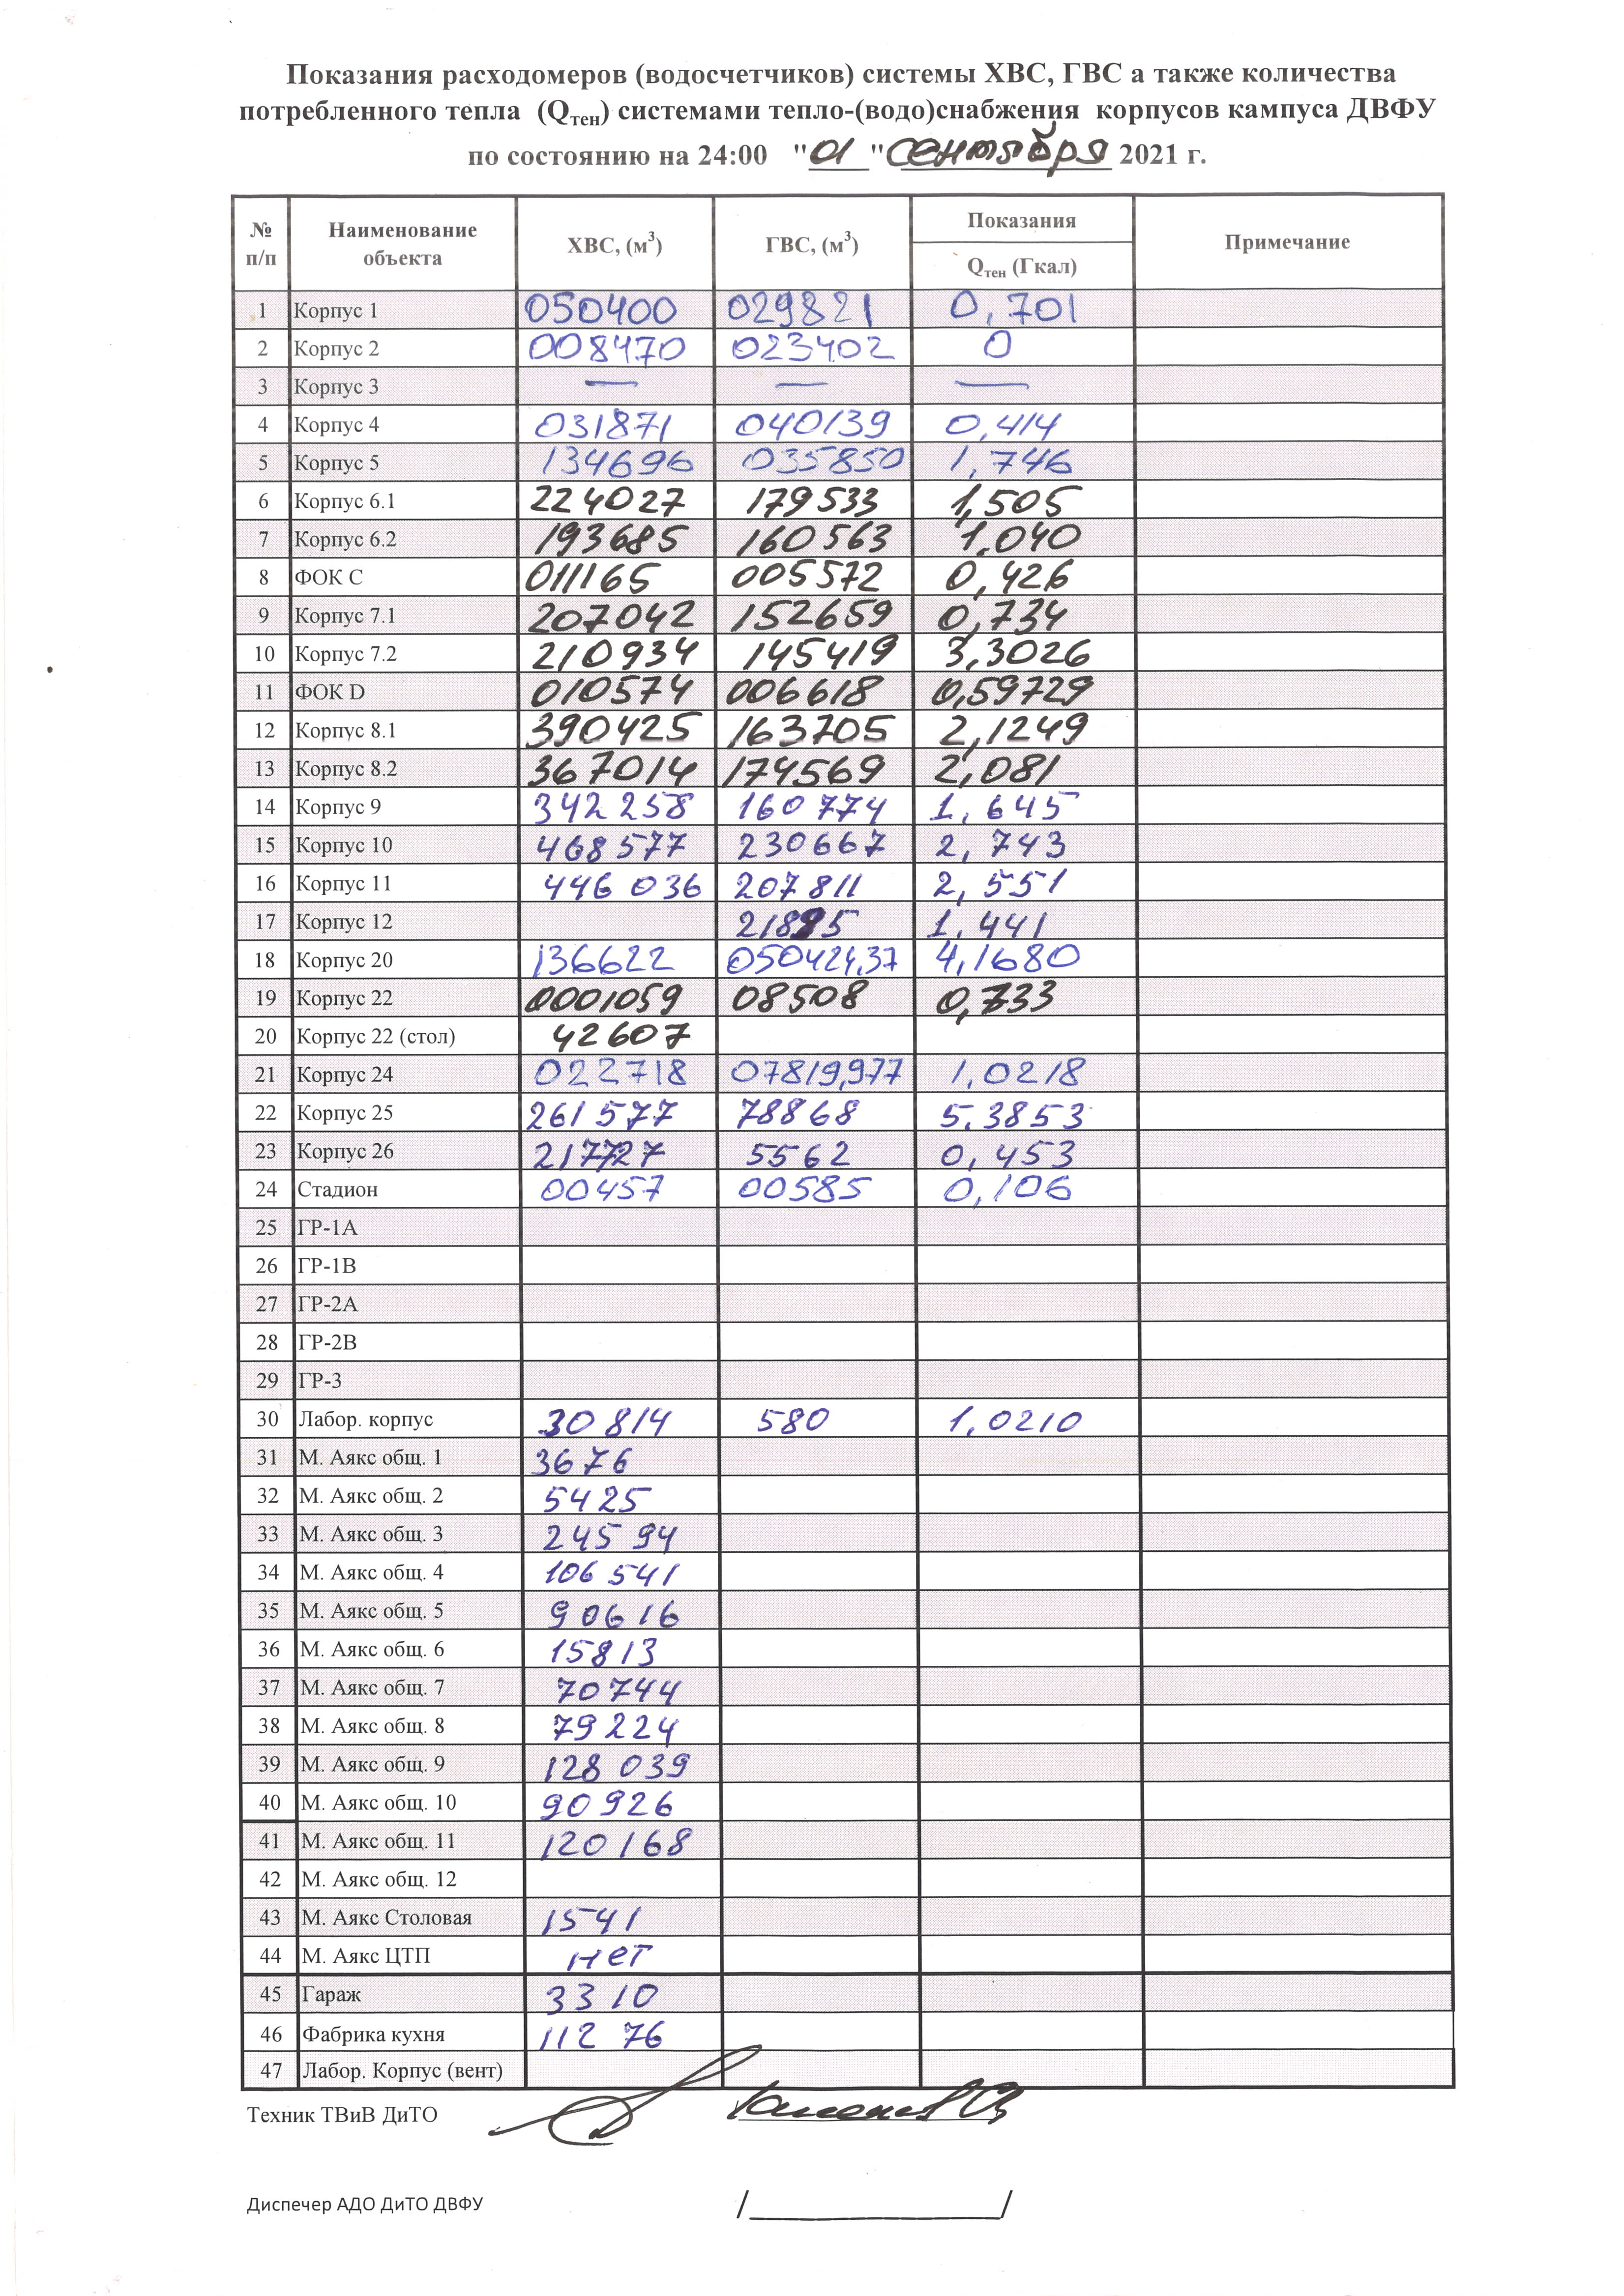 Показания расходомеров (водосчетчиков) системы ХВС, ГВС а также количества
потребленного тепла (Qтен) системами тепло-(водо)снабжения корпусов кампуса ДВФУ
по состоянию на 24:00 "01" сентября 2021 г.
№ п/п Наименование объекта ХВС, (м³) ГВС, (м³) Показания Qтен (Гкал) Примечание
1 Корпус 1 050400 029821 0,701
2 Корпус 2 008470 023402 0
3 Корпус 3 — — —
4 Корпус 4 031871 040139 0,414
5 Корпус 5 134696 035850 1,746
6 Корпус 6.1 224027 179533 1,505
7 Корпус 6.2 193685 160563 1.040
8 ФОК С 011165 005572 0,426
9 Корпус 7.1 207042 152659 0,734
10 Корпус 7.2 210934 145419 3,3026
11 ФОК D 010574 006618 0,59729
12 Корпус 8.1 390425 163705 2,1249
13 Корпус 8.2 367014 174569 2,081
14 Корпус 9 342 258 160 774 1,645
15 Корпус 10 468 577 230667 2,743
16 Корпус 11 446 036 207 811 2,551
17 Корпус 12 1.441
18 Корпус 20 136622 050424,37 4,1680
19 Корпус 22 0001059 08508 0,733
20 Корпус 22 (стол) 42607
21 Корпус 24 022718 07819,977 1,0218
22 Корпус 25 261 577 78868 5.3853
23 Корпус 26 217727 5562 0,453
24 Стадион 00457 00585 0,106
25 ГР-1А
26 ГР-1В
27 ГР-2А
28 ГР-2В
29 ГР-3
30 Лабор. корпус 30 814 580 1,0210
31 М. Аякс общ. 1 3676
32 М. Аякс общ. 2 5425
33 М. Аякс общ. 3 245 94
34 М. Аякс общ. 4 106 541
35 М. Аякс общ. 5 90616
36 М. Аякс общ. 6 15813
37 М. Аякс общ. 7 70744
38 М. Аякс общ. 8 79224
39 М. Аякс общ. 9 128 039
40 М. Аякс общ. 10 90926
41 М. Аякс общ. 11 120168
42 М. Аякс общ. 12
43 М. Аякс Столовая 1541
44 М. Аякс ЦТП нет
45 Гараж 3310
46 Фабрика кухня 112 76
47 Лабор. Корпус (вент)
Техник ТВиВ ДиТО
Диспечер АДО ДиТО ДВФУ /____________/